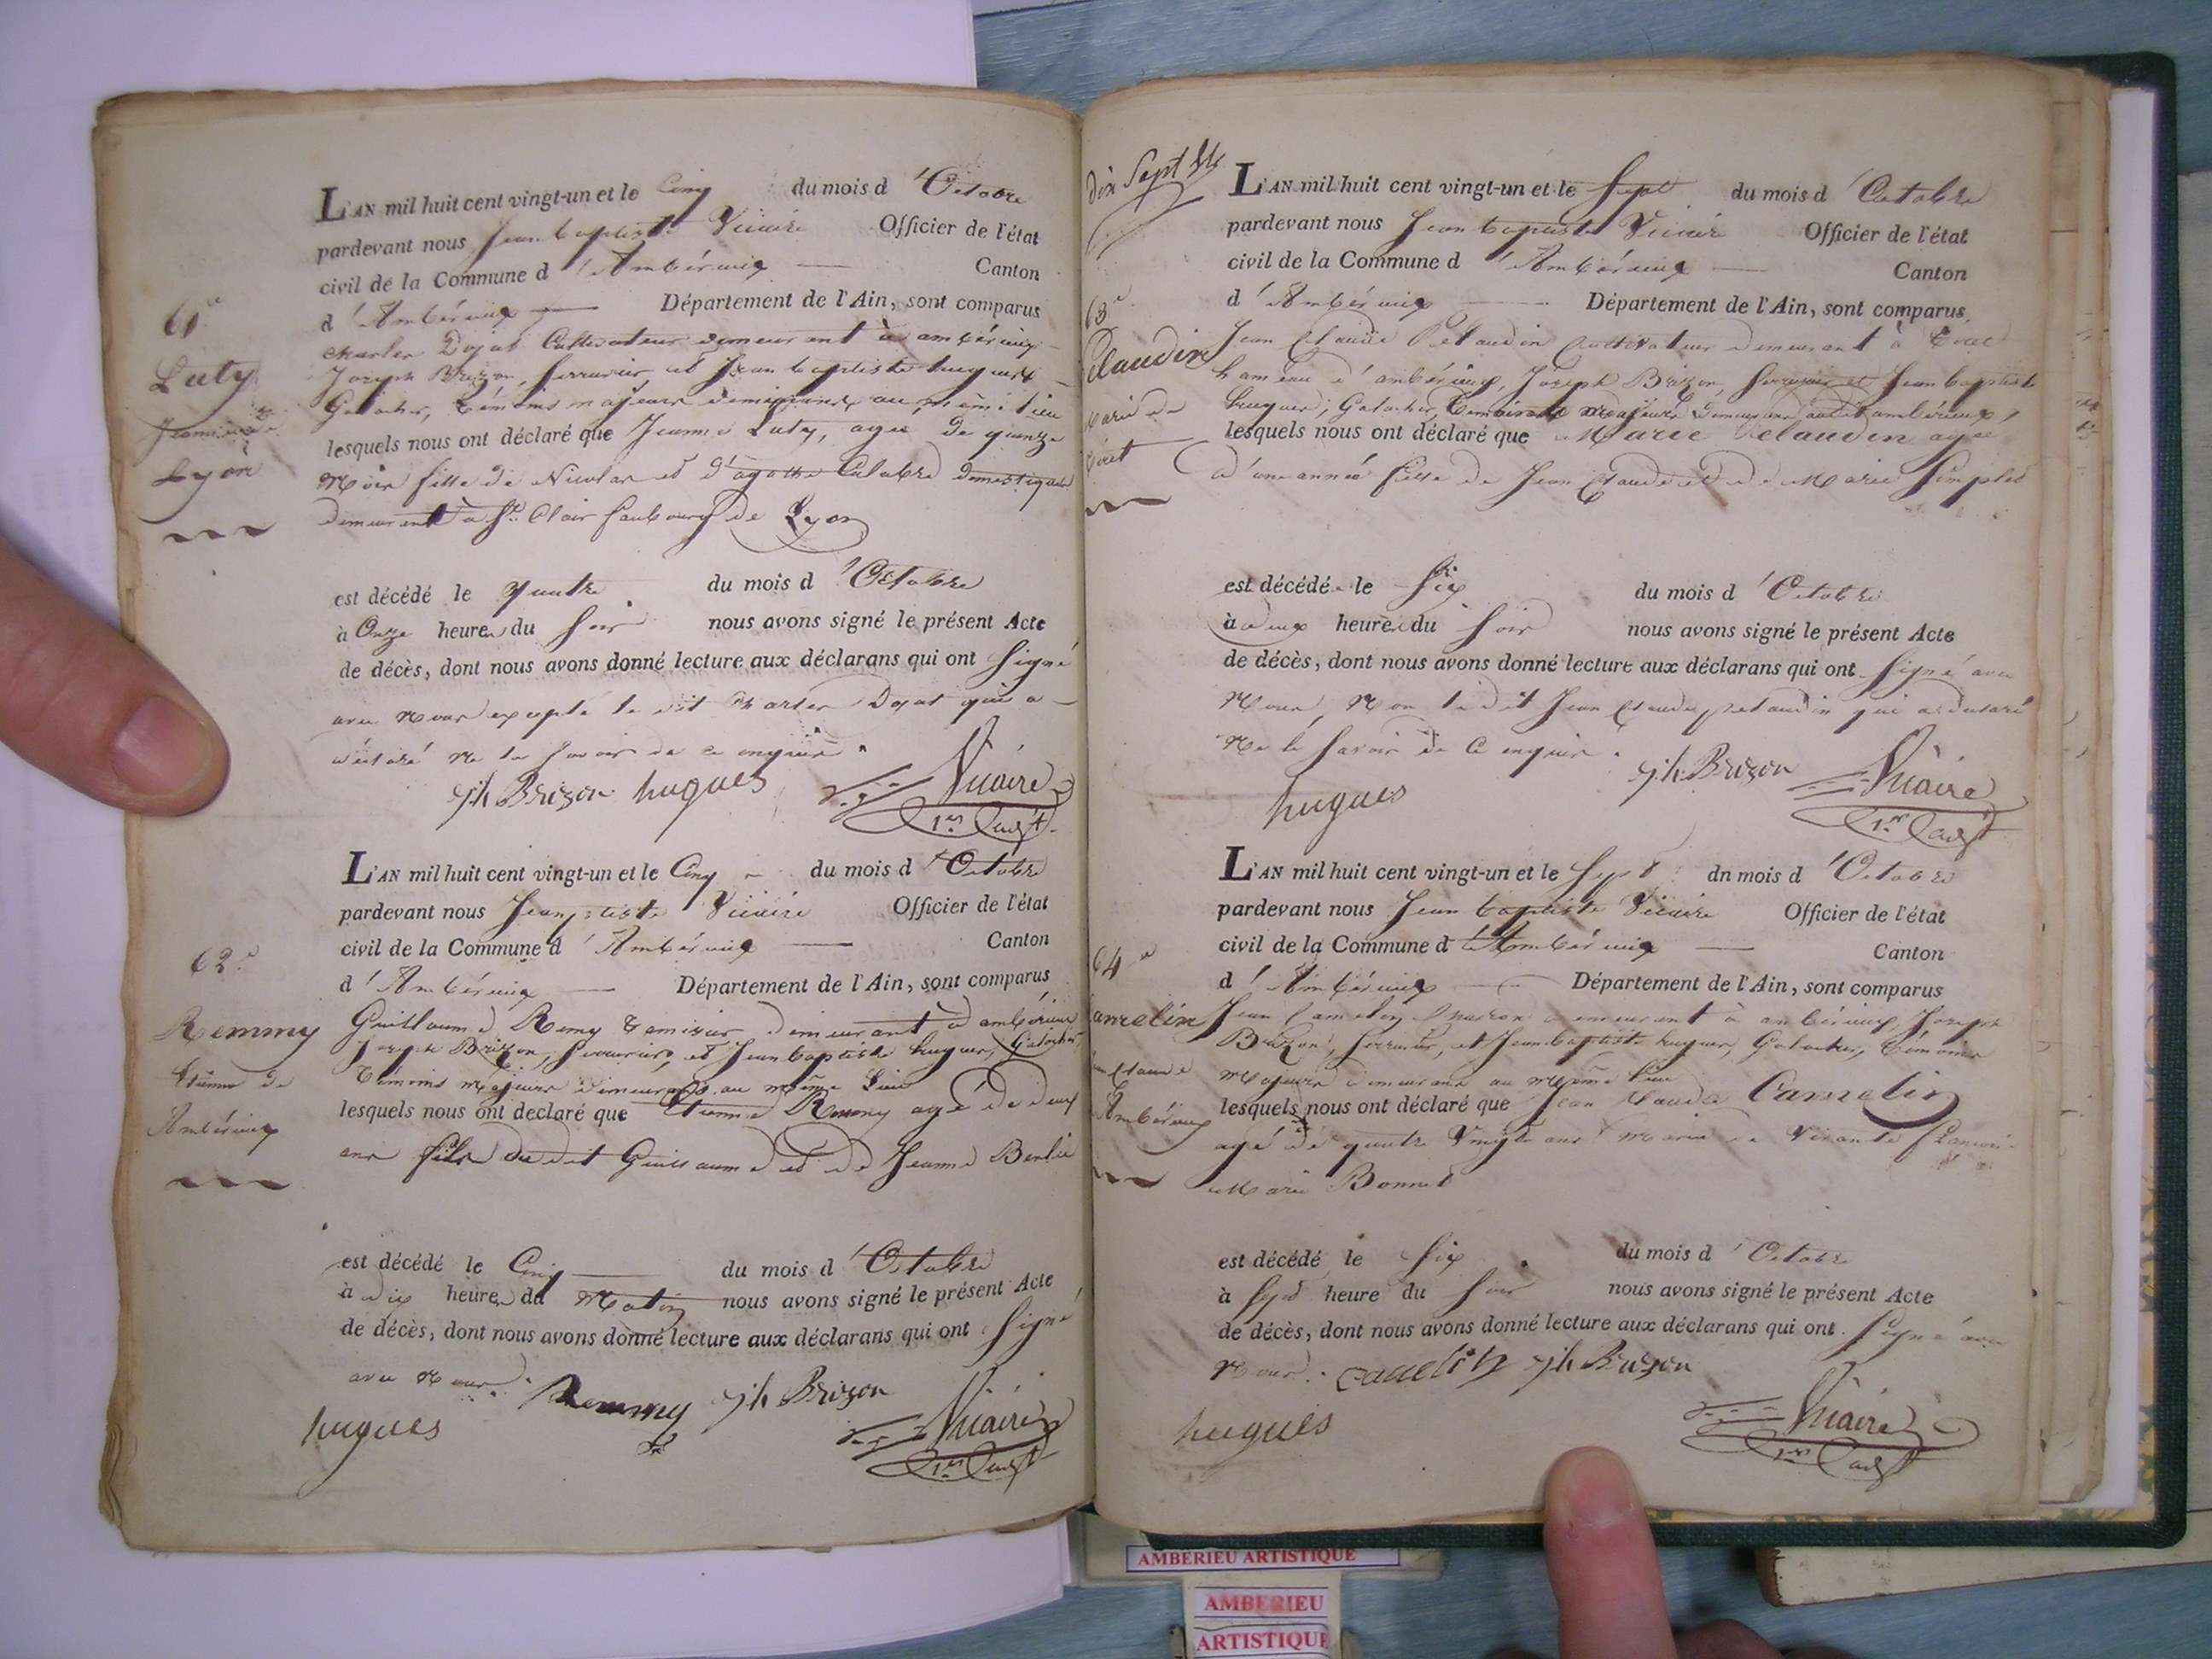 61e
Luty
Jeanne de
Lyon
L'AN mil huit cent vingt-un et le Cinq du mois d 'Octobre
pardevant nous Jean baptiste Vicaire Officier de l'état
civil de la Commune d 'Ambérieux Canton
d 'Ambérieux Département de l'Ain, sont comparus
Charles Dojat Cultivateur demeurant à ambérieux
Joseph Brizon, serrurier et Jean baptiste hugues
Galocher, témoins majeurs demeurant au même lieu
lesquels nous ont déclaré que Jeanne Luty, agée de quinze
Mois fille de Nicolas et d'agathe Calabre domestiques
demeurant à St. Clair faubourg de Lyon
est décédé le quatre du mois d 'Octobre
à Onze heures du soir nous avons signé le présent Acte
de décès, dont nous avons donné lecture aux déclarans qui ont signé
avec Nous excepté le dit Charles Dojat qui a
déclaré Ne le savoir de ce enquis
jh Brizon hugues Vicaire
1er adjt
62e
Remmy
Etienne de
Ambérieux
L'AN mil huit cent vingt-un et le Cinq du mois d 'Octobre
pardevant nous Jean ptiste Vicaire Officier de l'état
civil de la Commune d 'Ambérieux Canton
d 'Ambérieux Département de l'Ain, sont comparus
Guillaume Remy demeurant à ambérieux
Joseph Brizon, serrurier, et Jean baptiste hugues, Galocher,
témoins majeurs demeurant au même Lieu
lesquels nous ont declaré que Etienne Remmy agé de deux
ans fils dudit Guillaume et de Jeanne
est décédé le Cinq du mois d 'Octobre
à dix heures du Matin nous avons signé le présent Acte
de décès, dont nous avons donné lecture aux déclarans qui ont signé
avec Nous.
Remmy jh Brizon
hugues Vicaire
1er adjt
Dix Sept
63e
elaudin
Marie de
L'AN mil huit cent vingt-un et le sept du mois d 'Octobre
pardevant nous Jean baptiste Vicaire Officier de l'état
civil de la Commune d 'Ambérieux Canton
d 'Ambérieux Département de l'Ain, sont comparus,
Jean Claude Pelaudin Cultivateur demeurant à
hameau d'ambérieux, Joseph Brizon, serrurier et Jean baptiste
hugues, Galocher, témoins Majeurs demeurant audit ambérieux,
lesquels nous ont déclaré que Marie Pelaudin agée
d'une année fille de Jean Claude et de Marie Simples
est décédé le Six du mois d 'Octobre
à deux heures du soir nous avons signé le présent Acte
de décès, dont nous avons donné lecture aux déclarans qui ont signé avec
Nous, Non le dit Jean Claude pelaudin qui a déclaré
Ne le savoir de ce enquis.
jh Brizon Vicaire
hugues 1er adjt
64e
amelin
Claude
Ambérieux
L'AN mil huit cent vingt-un et le sept dn mois d 'Octobre
pardevant nous Jean baptiste Vicaire Officier de l'état
civil de la Commune d 'Ambérieux Canton
d 'Ambérieux Département de l'Ain, sont comparus
Jean Camelin Maçon demeurant à ambérieux, Joseph
Brizon, serrurier, et Jean baptiste hugues, Galocher, témoins
Majeurs demeurant au Même lieu
lesquels nous ont déclaré que Jean Claude Camelin
agé de quatre Vingts ans Marié de Vivante
Marie Bonnet
est décédé le Six du mois d 'Octobre
à sept heure du soir nous avons signé le présent Acte
de décès, dont nous avons donné lecture aux déclarans qui ont signé avec
Nous. Camelin jh Brizon
hugues Vicaire
1er adjt
AMBERIEU ARTISTIQUE
AMBERIEU
ARTISTIQUE